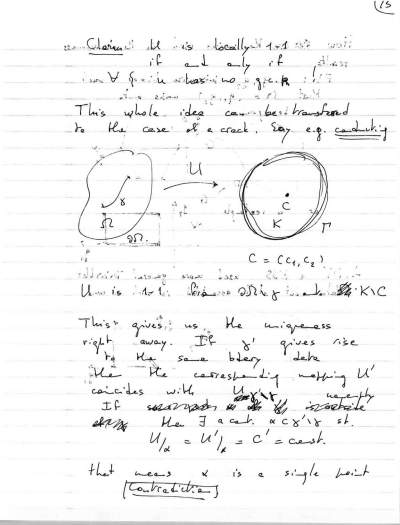 15
Claim: U is locally 1-1
if and only if
∀ ξ, u has no g.c.p.
This whole idea can be transferred
to the case of a crack. Say e.g. conducting
U
γ
Ω
∂Ω
C
K
Γ
C = (C1, C2)
U is 1-1 from Ω\γ K\C
This gives us the uniqueness
right away. If γ' gives rise
to the same bdery data
then the corresponding mapping U'
coincides with U
If
then ∃ a cont. α ⊂ γ'\γ st.
U/α = U'/α = C' = const.
that means α is a single point
Contradiction